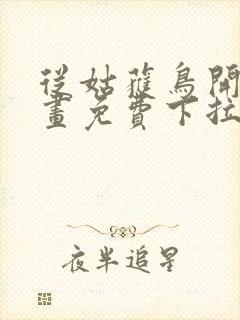 從姑獲鳥開
畫免費下拉
夜半追星